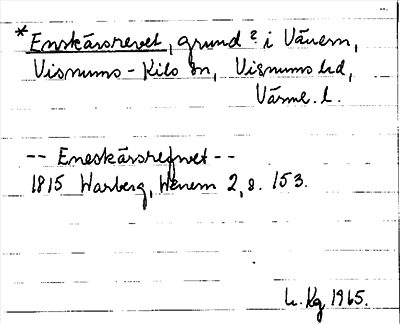 * Enskärsrevet, grund? i Vänern,
Visnums-Kils sn, Visnums hd,
Värml. l.
-- Eneskärsrefvet --
1815 Warberg, Wenern 2, s. 153.
L. Kg 1965.